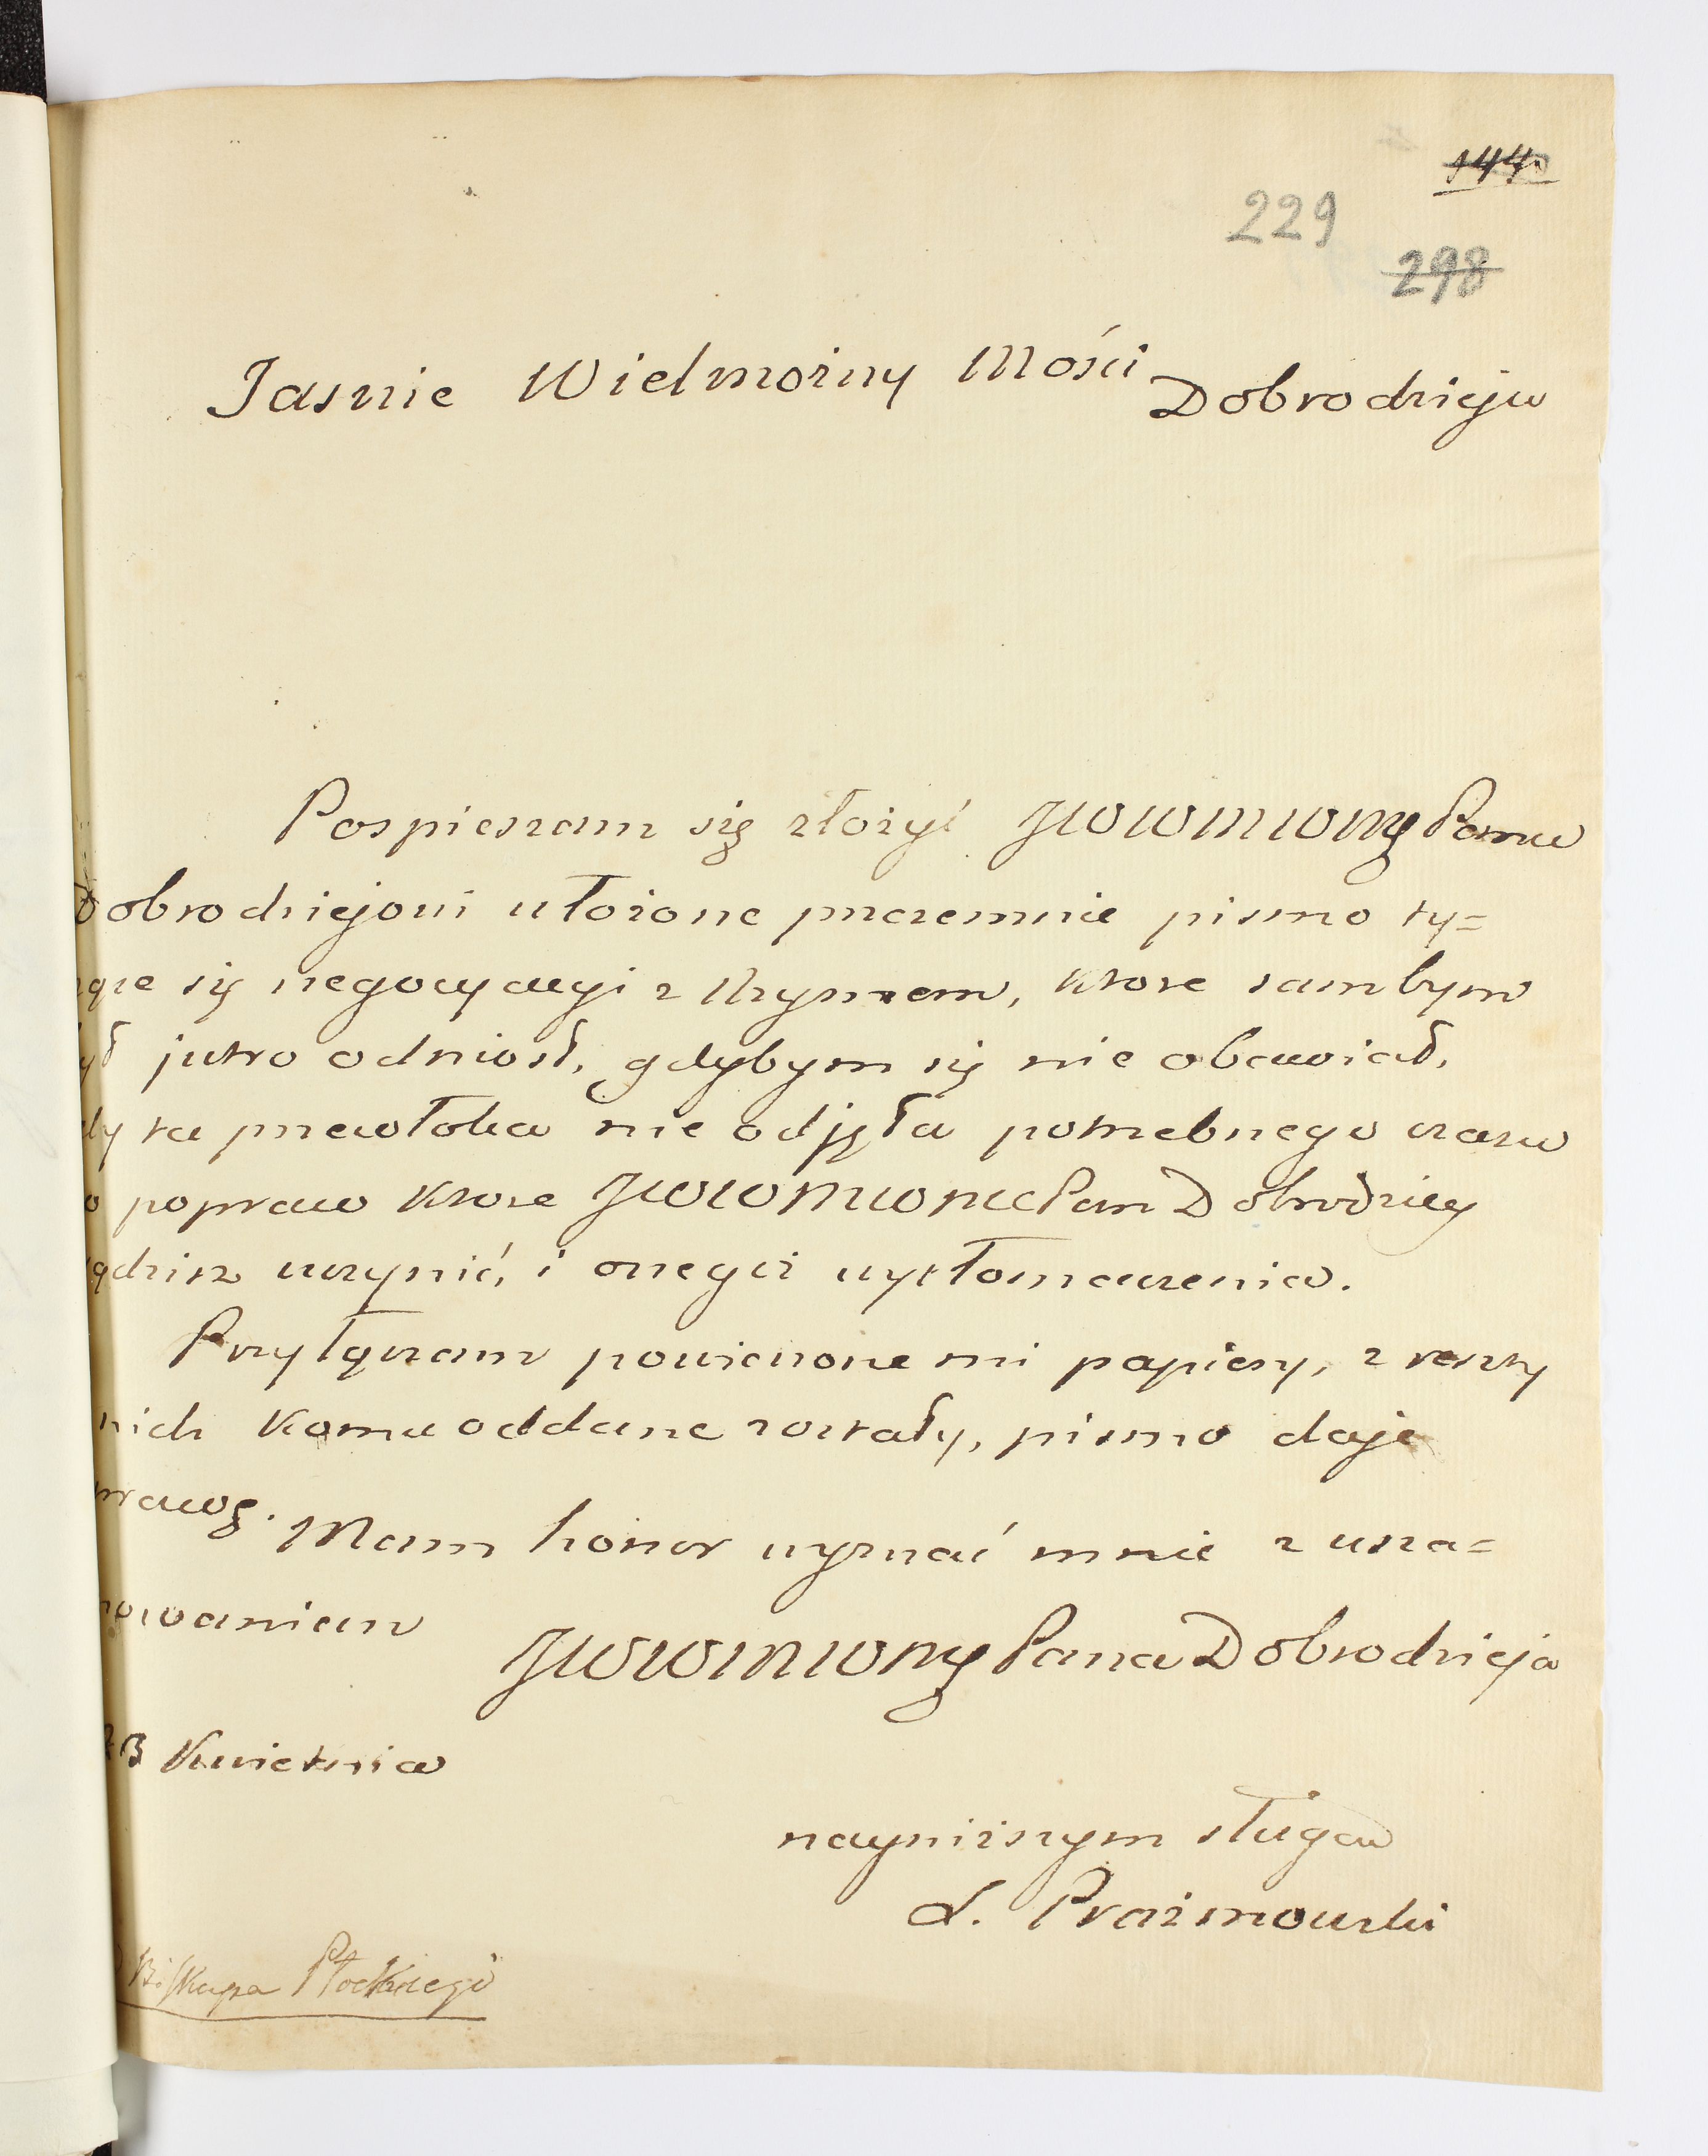 144.
229
298
Jasnie Wielmożny Mości Dobrodzieju
Pospieszam się złożyć JWWMWMę Panu
Dobrodziejowi ułożone przezemnie pismo ty=
ące się negocyacyi z Rzymem, które sambym
ył jutro odniosł, gdybym się nie obawiał,
dy ta przewłoka nie odjęła potrzebnego czasu
o popraw które Pan Dobrodziey
ądzisz uczynić, i onegoż wytłomaczenia.
Przyłączam powierzone mi papiery, z reszty
nich komu oddane zostały, pismo daje
prawę. Mam honor wyznać mnie z usza=
nowaniem
Pana Dobrodzieja
23 Kwietnia
nayniższym sługą
A. Prażmowski
Biskupa Płockiego